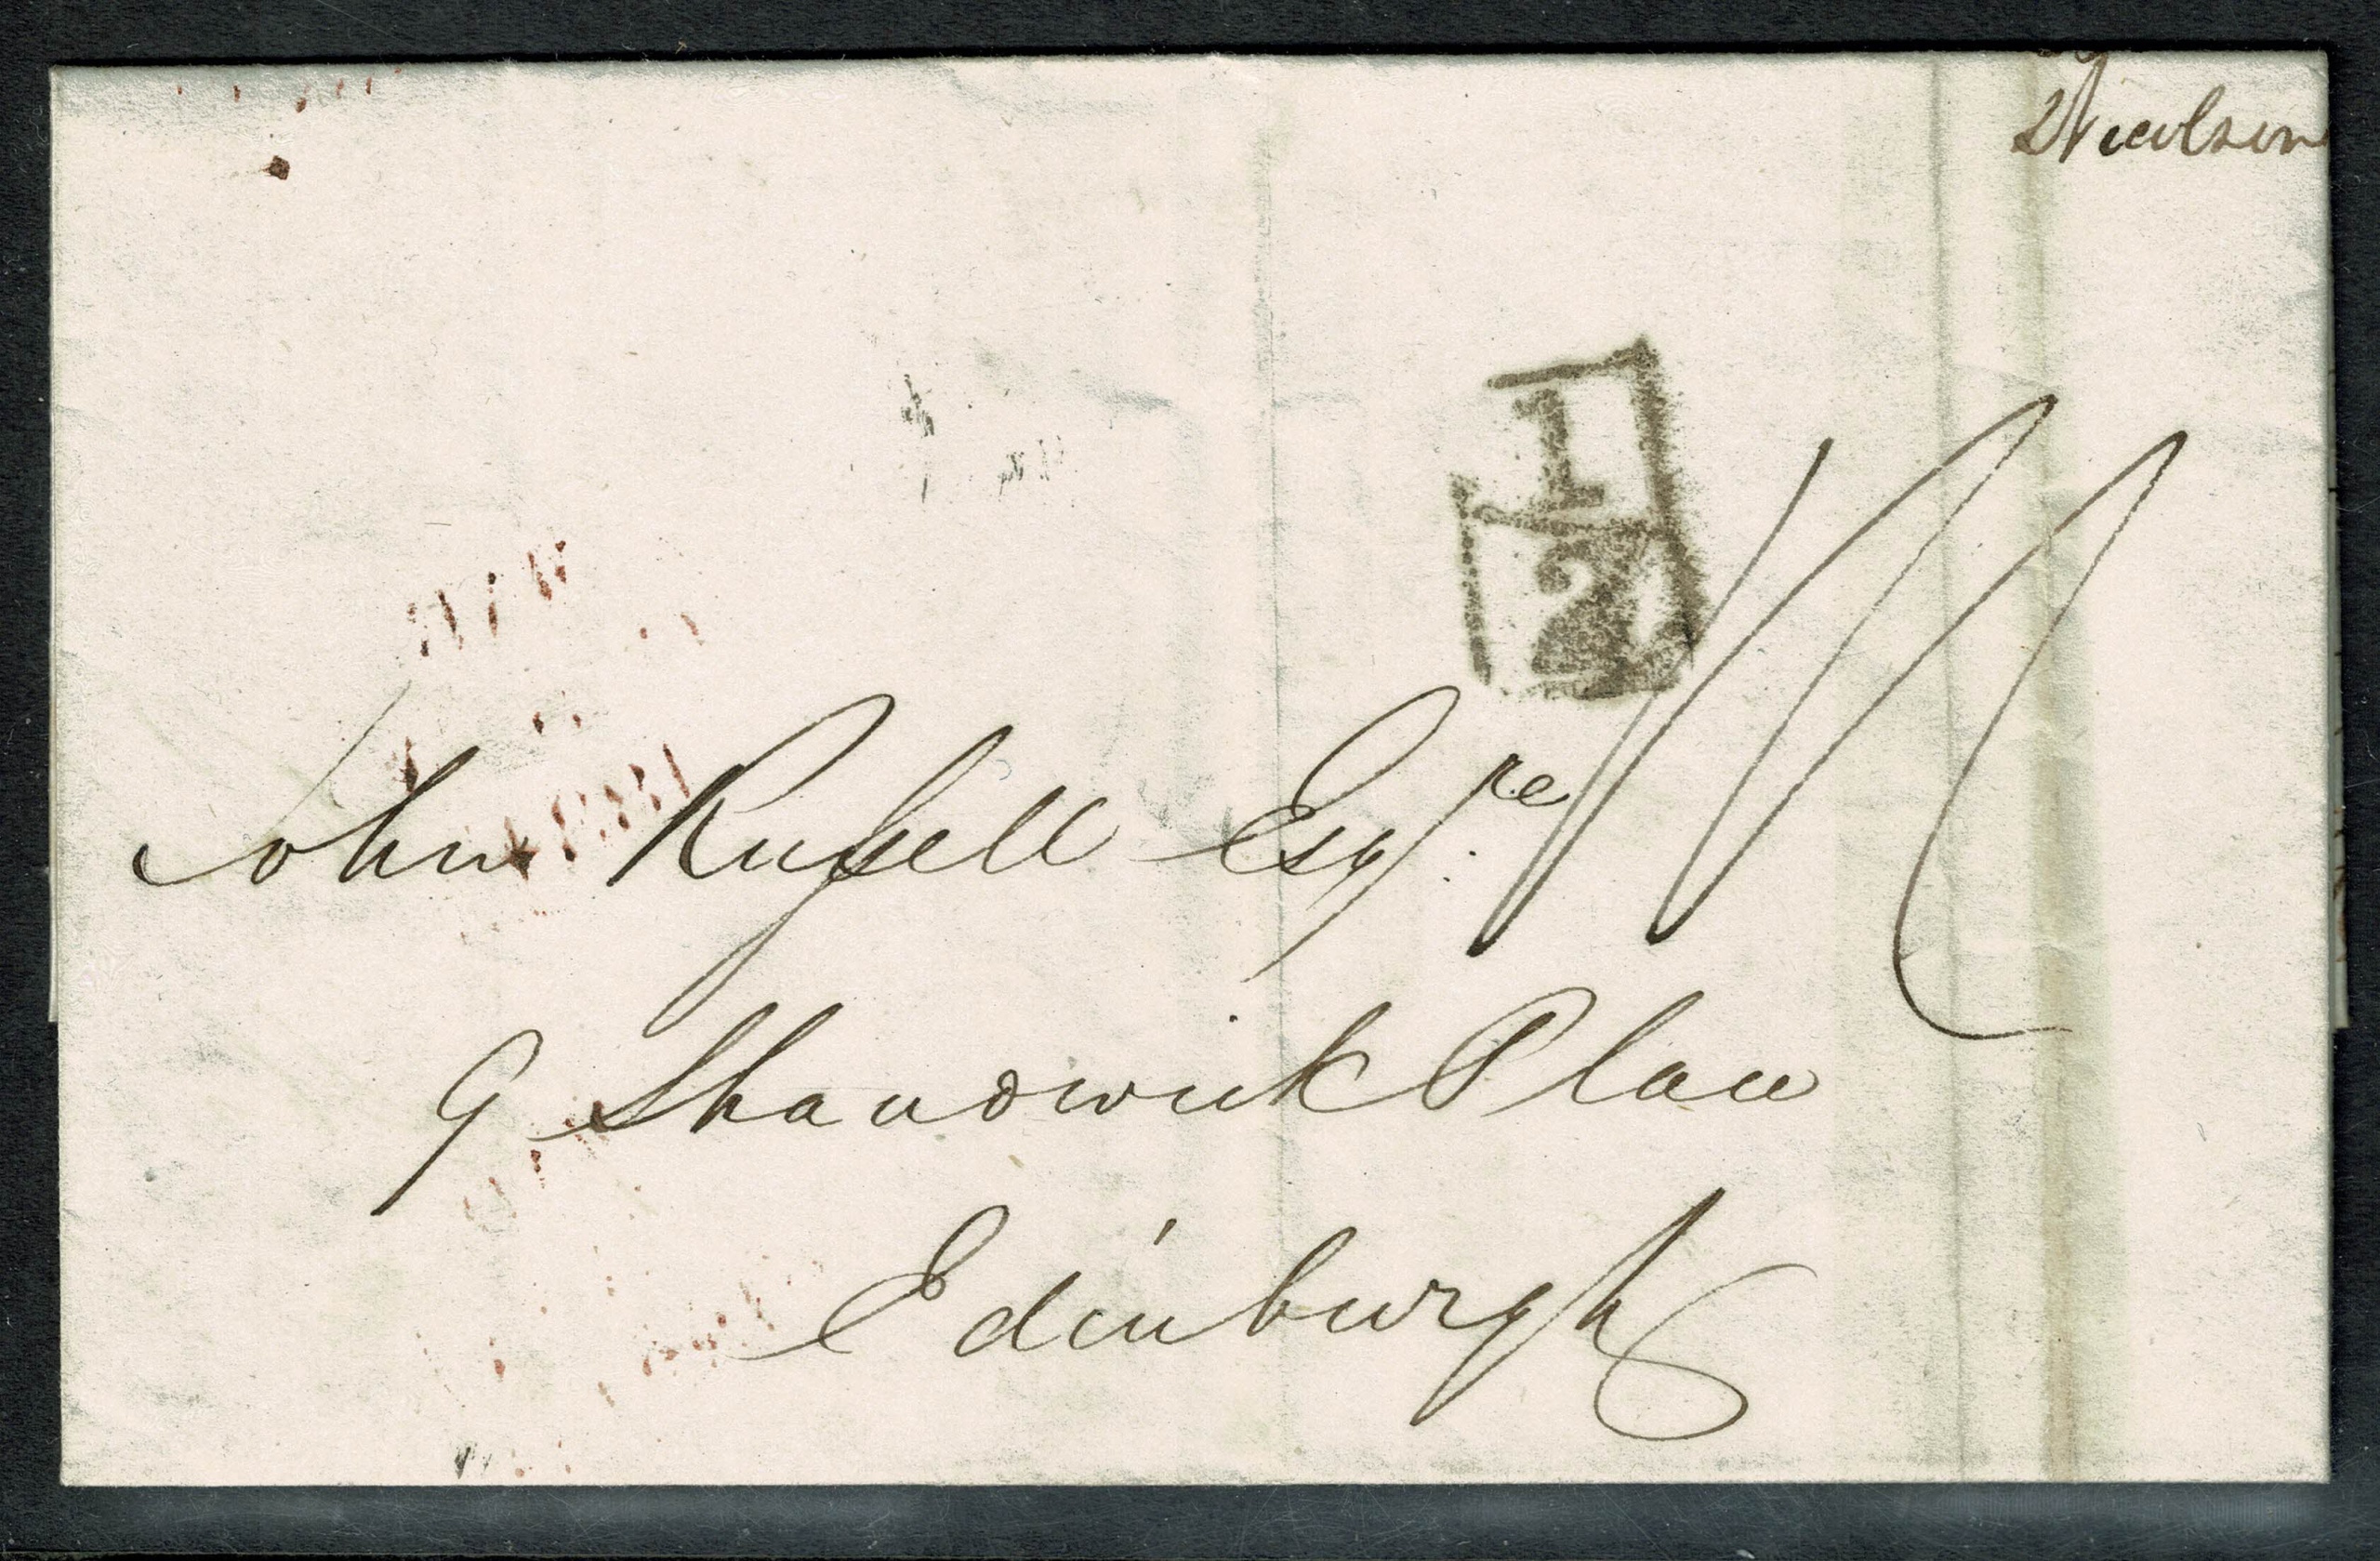 Nicolson
1
2
John Russell Esqre
9 Shandwick Place
Edinburgh